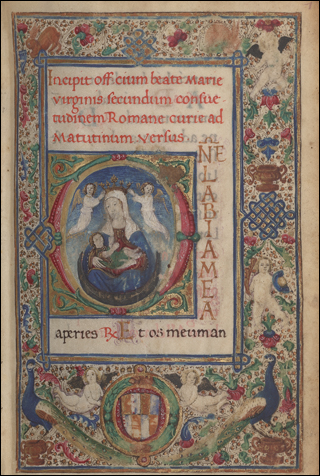 Incipit officium beate Marie
virginis secundum consue-
tudinem Romane curie ad
Matutinum versus
DNE
LABIA MEA
aperies R Et os meum an